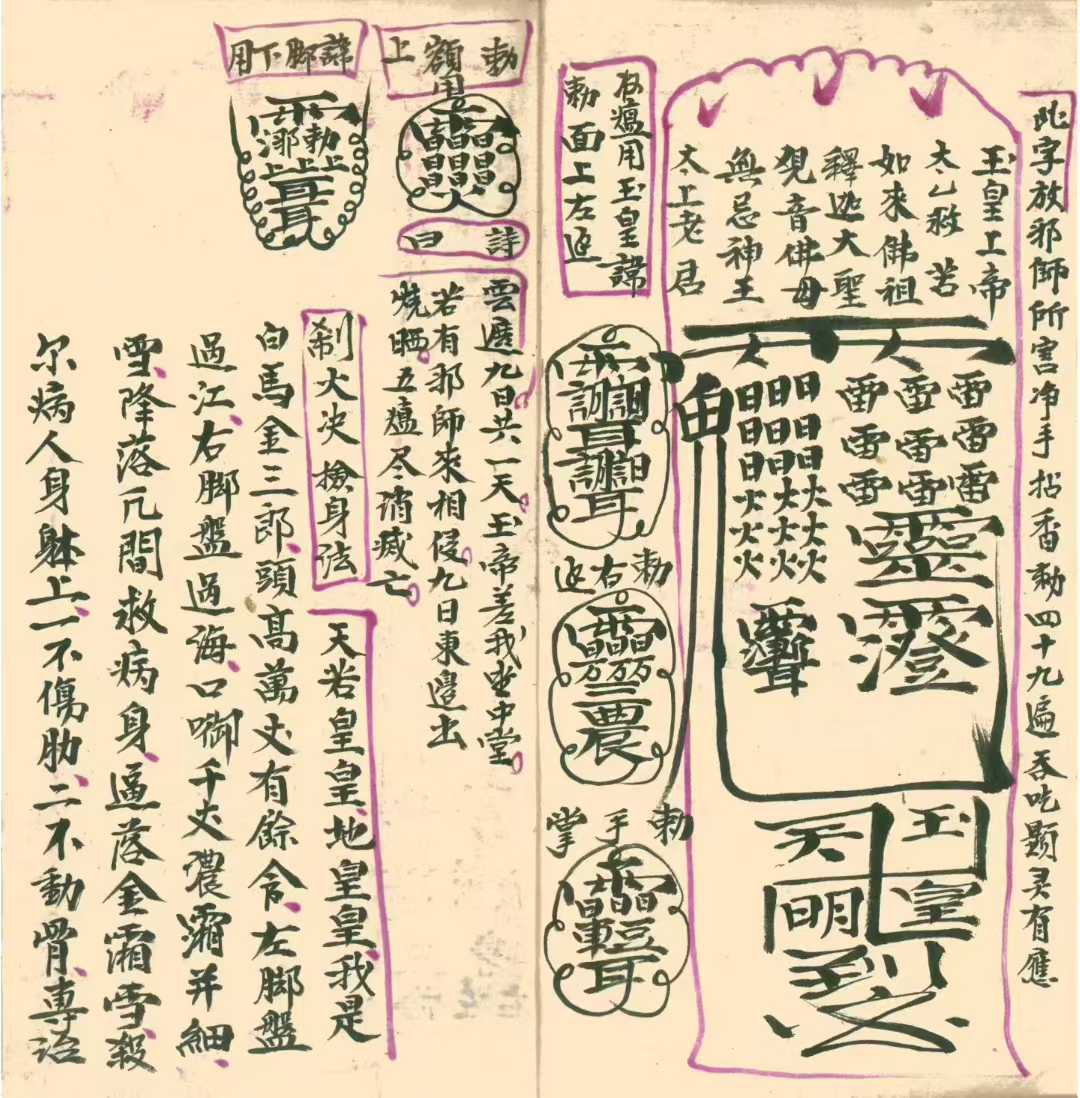 此字放邪師所害净手拈香勅四十九遍吞吃顯灵有應
玉皇上帝
太乙救苦
如來佛祖
釋迦大聖
覌音佛母
無忌神王
太上老君
雷雷雷
雷雷雷
雷雷雷
日日日
日日日
日日日
火火火
火火火
火火火
靈
玉皇
天明
瘟用玉皇諱
勅面上左边
勅右边
勅手掌
勅額上用
諱脚下用
詩曰
雲遮九日共一天玉帝差我坐中堂
若有邪師來相侵九日東邉出
燒晒五瘟尽消滅亡
刹火决撿身法
天若皇皇、地皇皇、我是
白馬金三郎、頭髙萬丈有餘令、左脚盤
過江、右脚盤過海、口啣千丈濃霜并細、
雪、降落凡間救病身、逼落金霜雪、殺
尔病人身躰上、一不傷肋、二不動骨、專治